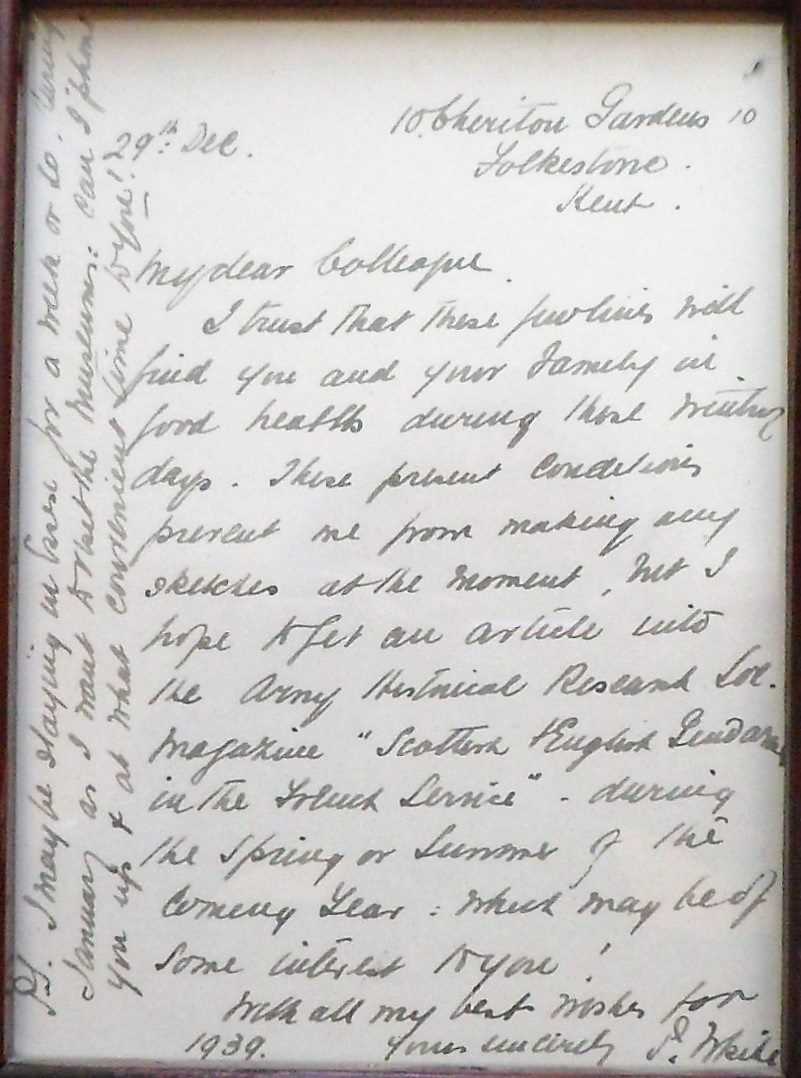 10. Cheriton Gardens 10
Folkestone.
Kent.
29th Dec.
My dear Colleague.
I trust that these few lines will
find you and your Family in
good health during these wintry
days. These present conditions
prevent me from making any
sketches at the moment, but I
hope to get an article into
the Army Historical Research Soc.
Magazine "Scottish & English Gendarmes
in the French Service" - during
the Spring or Summer of the
Coming Year: which may be of
some interest to you!
With all my best wishes for
1939. Yours sincerely P. White
P.S. I may be staying in for a week or so. during
January as I want to visit the Museums: can I 'phone
you up & at what convenient time to you!?